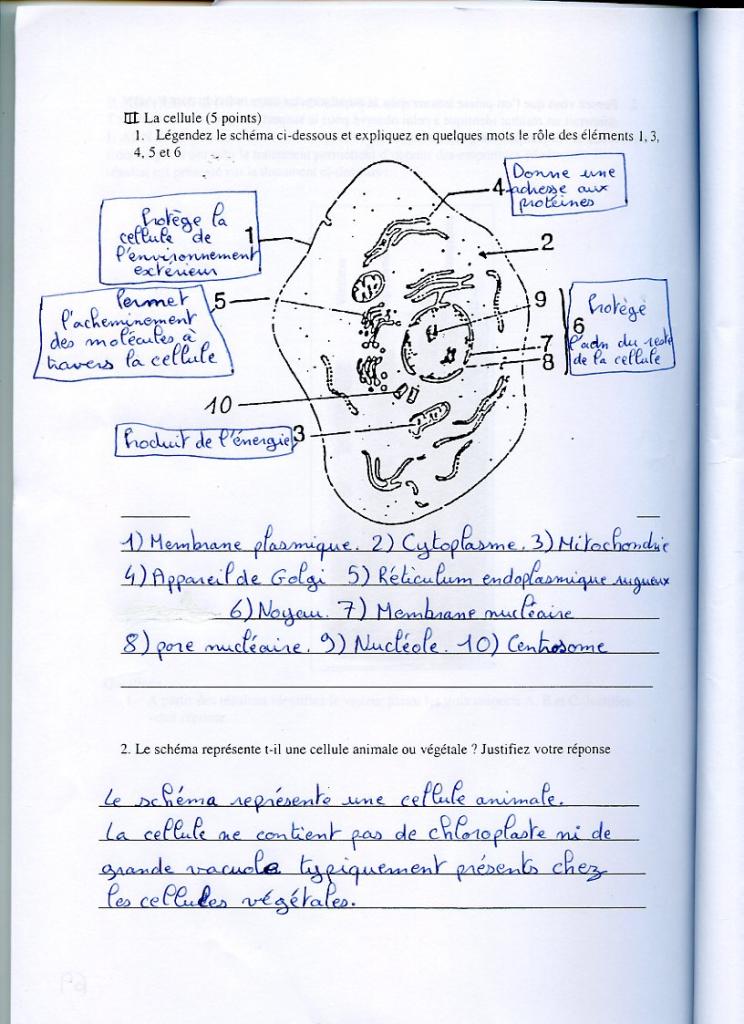 III La cellule (5 points)
1. Légendez le schéma ci-dessous et expliquez en quelques mots le rôle des éléments 1, 3,
4, 5 et 6
4
Donne une
adresse aux
protéines
Protège la
cellule de
l'environnement
extérieur
1
2
Permet
l'acheminement
des molécules à
travers la cellule
5
9
7
8
6
Protège
l'adn du reste
de la cellule
10
Produit de l'énergie
3
1) Membrane plasmique. 2) Cytoplasme. 3) Mitochondrie
4) Appareil de Golgi 5) Réticulum endoplasmique rugueux
6) Noyau. 7) Membrane nucléaire
8) pore nucléaire. 9) Nucléole. 10) Centrosome
2. Le schéma représente t-il une cellule animale ou végétale ? Justifiez votre réponse
Le schéma représente une cellule animale.
La cellule ne contient pas de chloroplaste ni de
grande vacuole typiquement présents chez
les cellules végétales.